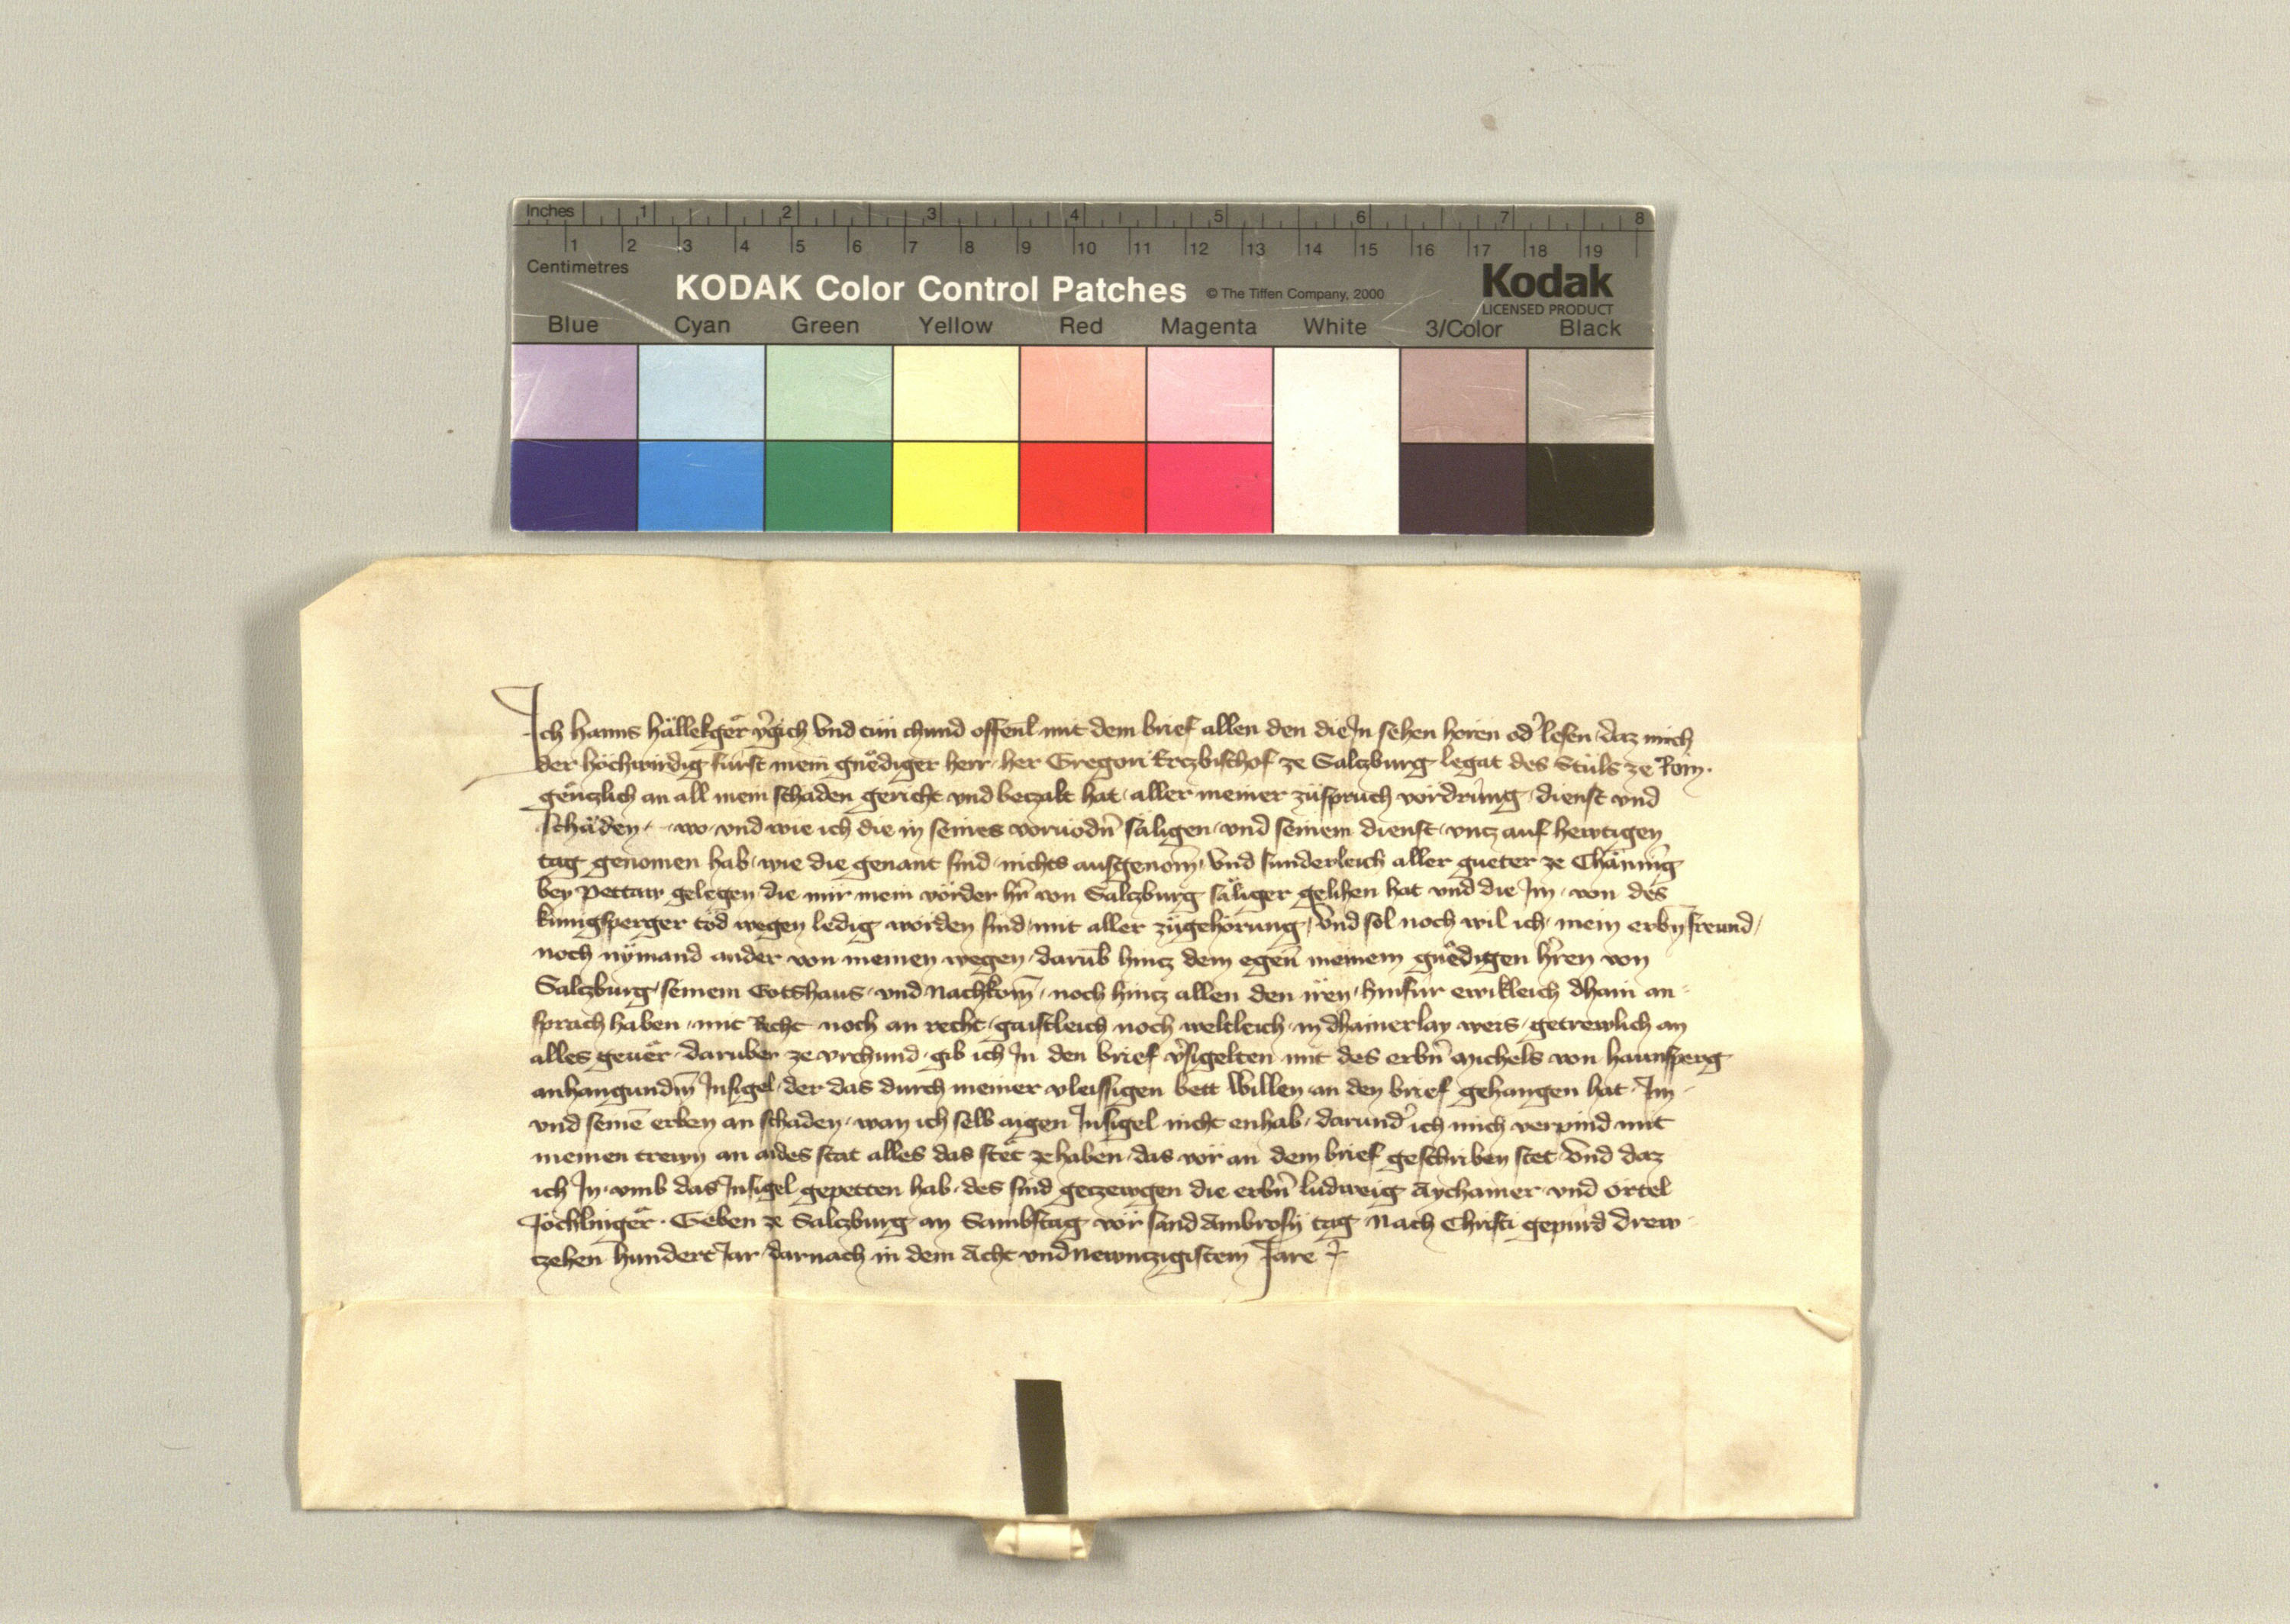 Inches 1 2 3 4 5 6 7 8
1 2 3 4 5 6 7 8 9 10 11 12 13 14 15 16 17 18 19
Centimetres
KODAK Color Control Patches © The Tiffen Company, 2000 Kodak
LICENSED PRODUCT
Blue Cyan Green Yellow Red Magenta White 3/Color Black
Ich Hanns Hällekger v̾gich vnd tün chund offenl̄ mit dem brief allen den die In sehen hören od̾ lesen daz mich
der höchwirdig fürst mein gnediger herr her Gregori Erczbischof ze Salczburg legat des Stüls ze Rom.
genczlich an all mein schaden gericht vnd beczalt hat aller meiner züspruch vordrüng dienst vnd
schäden wo vnd wie ich die in seines voruodn̄ säligen vnd seinem dienst vncz auf hewtigen
tag genomen hab wie die genant sind nichts ausgenom̄ vnd sunderleich aller gueter ze Chänni̾g
bey Pettaw gelegen die mir mein vorder hr̄ von Salczburg säliger gelihen hat vnd die Im von des
künigsperger töd wegen ledig worden sind mit aller zügehörung vnd sol noch wil ich mein erbn̄ freund
noch nÿmand ander von meinen wegen darūb hincz dem egen̄ meinem gnedigen h̾ren von
Salczburg seinem Gotshaus vnd nachkom̄ noch hincz allen den iren hinfür ewikleich dhain an-
sprach haben mit Recht noch an recht gaistleich noch weltleich in dhainerlay weis getrewlich an
alles geuer daruber ze vrchund gib ich In den brief v̾sigelten mit des erbn̄ Michels von Haunsperg
anhangundm̄ Insigel der das durch meiner vleissigen bett willen an den brief gehangen hat Im
vnd seinē erben an schaden wan ich selb aigen Insigel nicht enhab darund̾ ich mich verpind mit
meinen trewn an aides stat alles das stet ze haben das vor an dem brief geschriben stet vnd daz
ich In vmb das Insigel gepetten hab des sind geczewgen die erbn̄ ludweig Aychaimer vnd örtel
Jöchlinger Geben ze Salczburg an Sambstag vor sand Ambrosy tag Nach Christi gepürd drew-
czehen hundert Jar darnach in dem Acht vnd Newnczigistem Jare